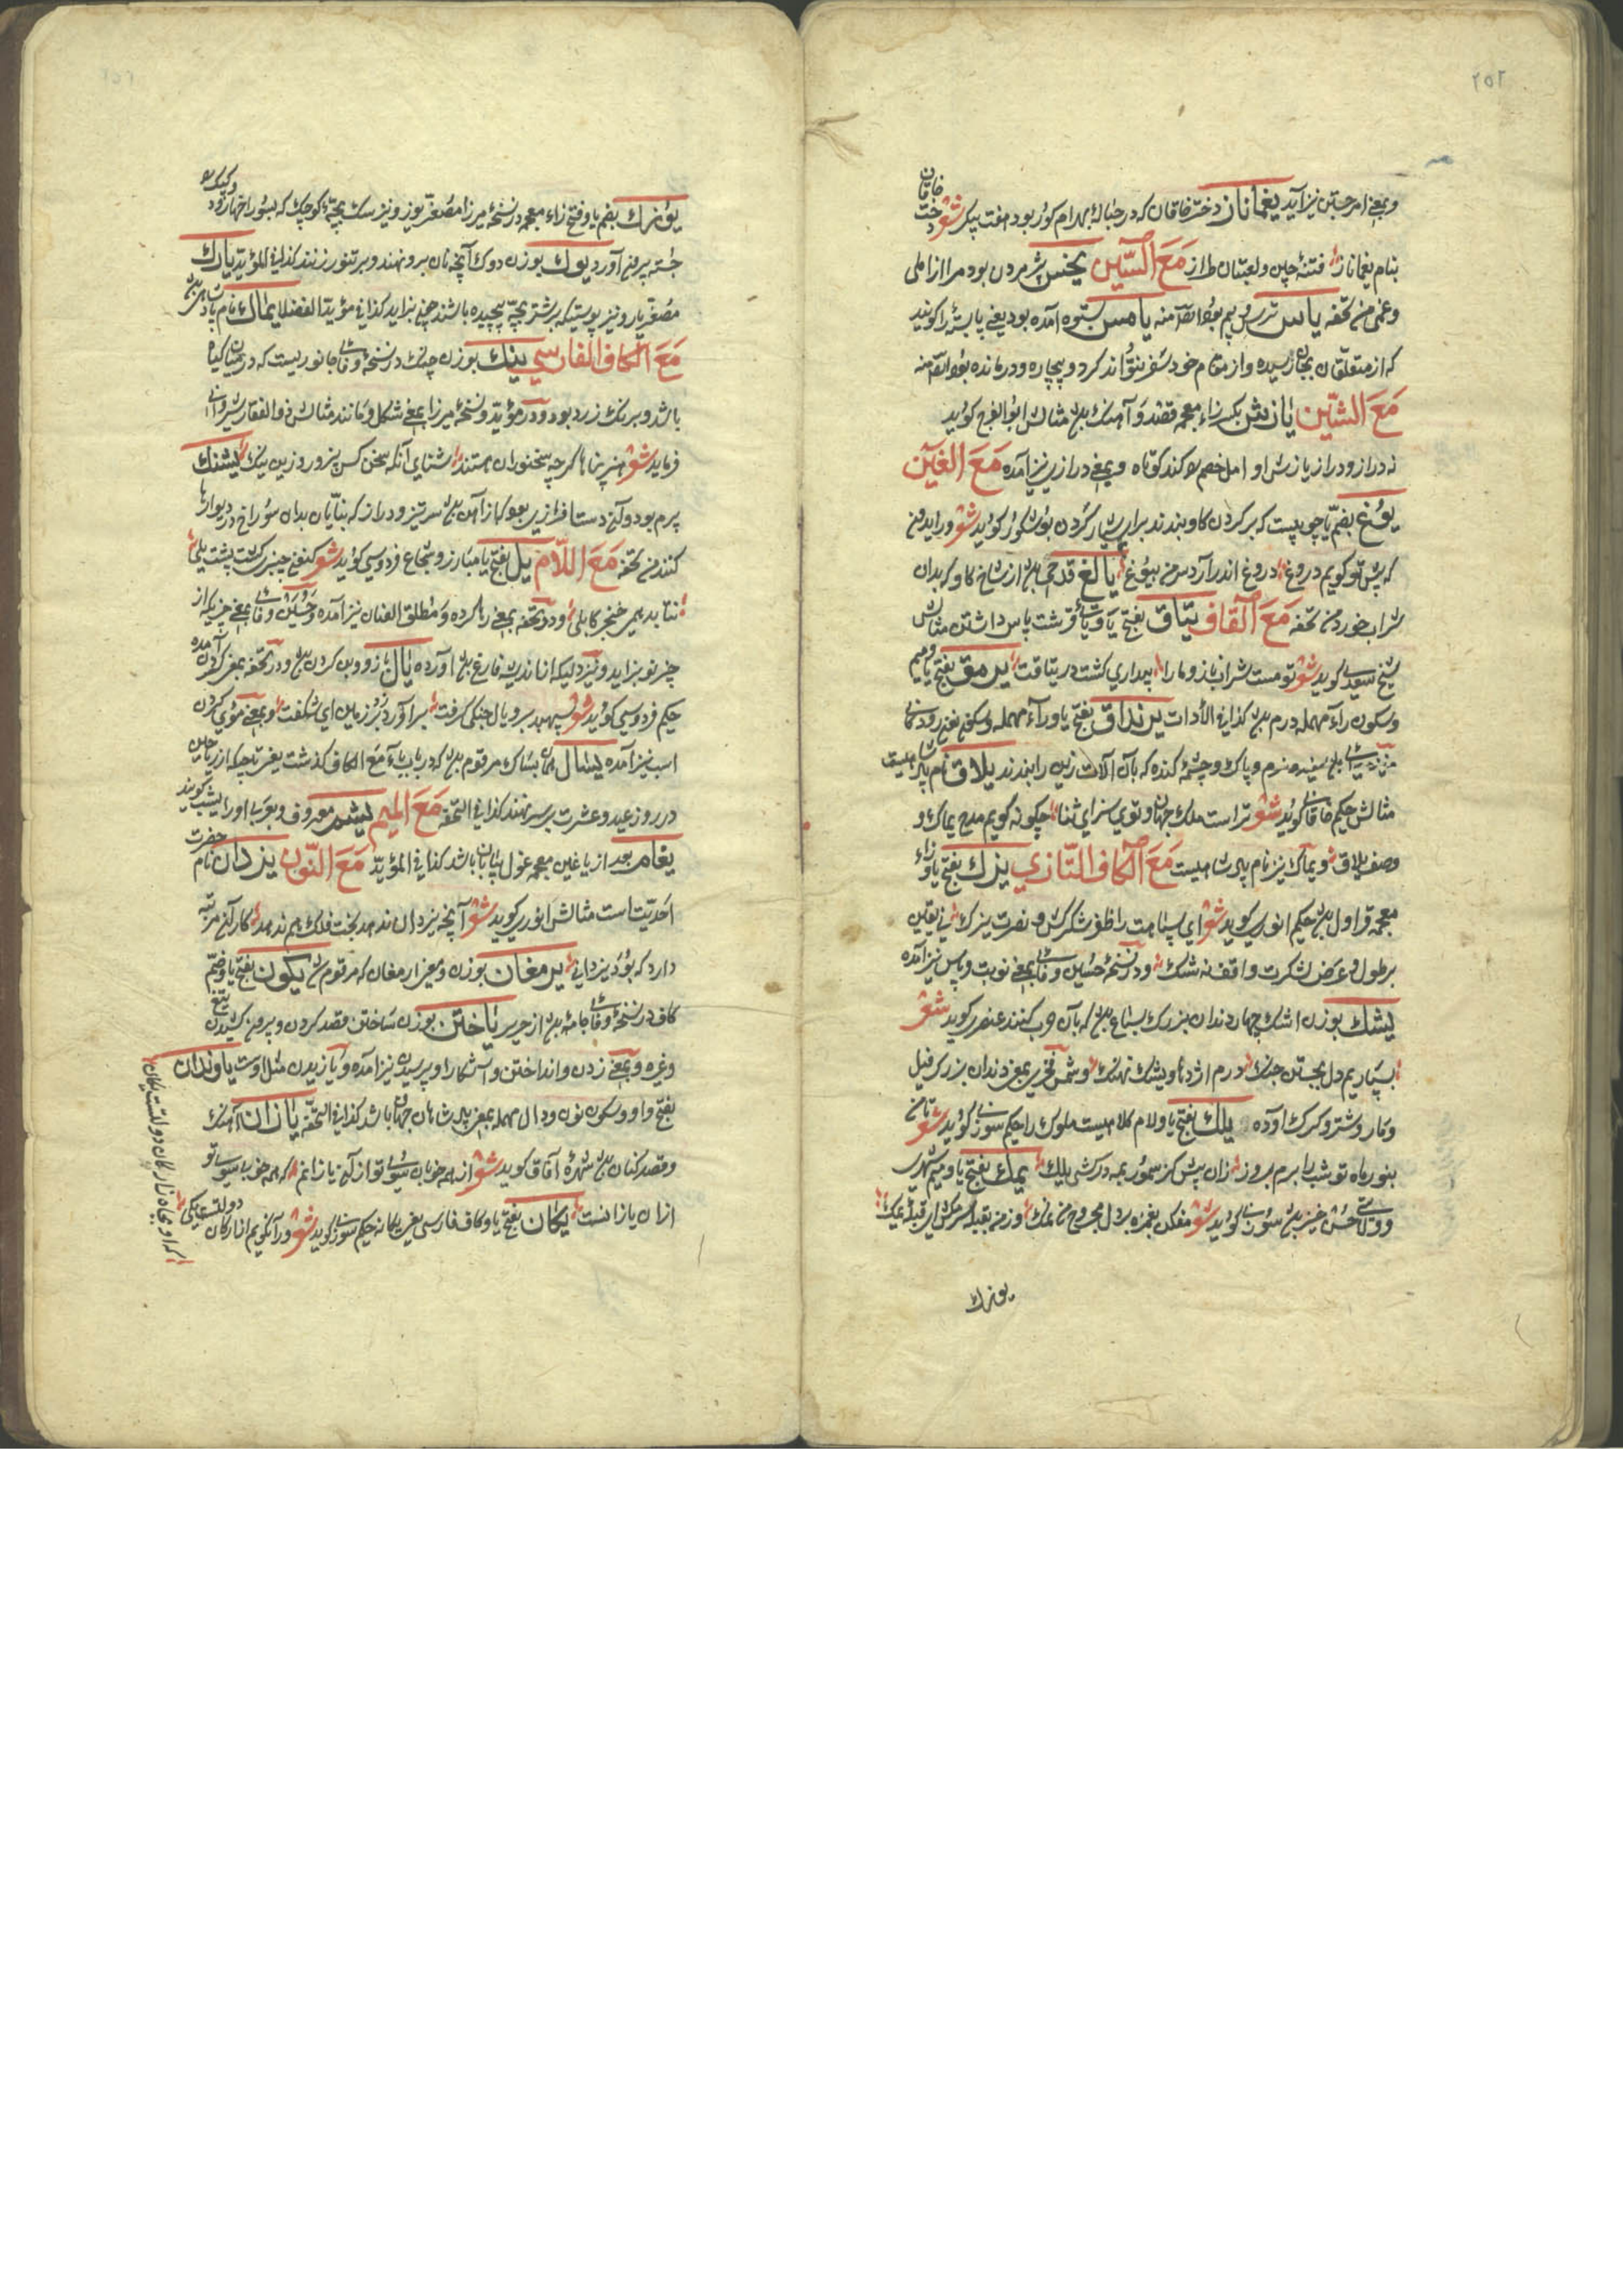 ۲۵۲
وبمعنی امر جستن نیز آید یغماناز دختر خاقان که در حبالهٔ بهرام کور بود هفت پیکر شعر دخت خاقان
بنام یغماناز فتنهٔ چین و لعبتان طراز مَعَ السّین یخس پژمردن بود مرا از املی
وعمی من تحفه یاس ترس و بیم بود ایضا منه یامس بستوه آمده بود یعنی پابسته را کویند
که از متعلّقان بجان رسیده و از مقام خود سفر نتواند کرد و بیچاره و درمانده بود ایضا منه
مَعَ الشّین یازش بکسر زاء معجمه قصد و آهنک بود مثالش ابو الفرج کوید
نه دراز و دراز یازش او امل خصم را کند کوتاه وبمعنی درازی نیز آمده مَعَ الغَین
یوغ بضم یا چوبیست که بر کردن کاو بندند برای شیار کردن کوید شعر ور ایدون
که پیش تو کویم دروغ دروغ اندر آرد سر من بیوغ یالغ قدحی بود از شاخ کاو که بدان
شراب خورند من تحفه مَعَ القاف یتاق بفتح یا پاس داشتن مثالش
شیخ سعدی کوید شعر تو مست شراب ناز و ما را بیداری کشت در یتاقت یرمق بفتح یا و میم
وسکون راء مهمله درم بود کذا فی الأدات یرنداق بفتح یا و راء مهمله وسکون نون رودهٔ
سفید و نرم و پاک که بآن آلات زین را ببندند یلاق نام پادشاهیست
مثالش حکیم خاقانی کوید شعر تراست ملک جهان و توی سزای ثنا چکونه کویم مدح یماک و
وصف یلاق ویماک نیز نام پادشاهیست مَعَ الکاف التّازی یزک بفتح یا و زاء
معجمه قراول بود حکیم انوری کوید شعر ای سپاهت را ظفر لشکرکش و نصرت یزک نی یقین
بر طول و عرض لشکرت واقف نه شک و در نسخهٔ حسین وفائی بمعنی نوبت و پاس نیز آمده
یشک بوزن اشک چهار دندان بزرک سباع بود که بآن حرب کنند عنصری کوید شعر
بسپاریم دل بجستن جنک در دم اژدها و یشک نهنک و شمس فخری بمعنی دندان بزرک فیل
و مار و شتر و کرک آورده یلک بفتح یا و لام کلاهیست ملوک را حکیم سوزنی کوید شعر تا من
بنور ماه تو شب را برم بروز زان پیش کز سمور بمه درکشی یلک یمک بفتح یا و میم شهریست
حسن خیز سوزنی کوید شعر مفکن بغمزه بر دل مجروح من نمک وز من بقبله سرکش ای قبلهٔ یمک
یوزک
۲۵۲
یوزک بضم یا و فتح زاء معجمه در نسخهٔ میرزا مصغّر یوز و نیز سک بچهٔ کوچک که بسوراخها رود و کبک را
جسته بیرون آورد یوک بوزن دوک آنچه نان برو نهند و بر تنور زنند کذا فی المؤید یارک
مصغّر یار و نیز پوستیکه بر شتر بچّه پیچیده باشند چون بزاید کذا فی مؤید الفضلا یماک نام پادشاهی بود
مَعَ الکاف الفارسی ینک بوزن چنک در نسخهٔ وفائی جانوریست که در میان کیاه
باشد و برنک زرد بود و در مؤید و نسخهٔ میرزا بمعنی شکل و مانند مثالش ذوالفقار شروانی
فرماید شعر هنر پناها کرچه سخنوران هستند آنکه سخن کس نپرورد زین ینک یشنک
پرم بود و آن دست افزاری بود از آهن سر تیز و دراز که بنّایان بدان سوراخ در دیوارها
کنند من تحفه مَعَ اللّام یل بفتح یا مبارز و شجاع فردوسی کوید شعر کنون چنبری کشت پشت یلی
نتابد همی خنجر کابلی و در تحفه بمعنی رها کرده و مطلق العنان نیز آمده و حسین وفائی بمعنی حیزی که از
چیز نو بزاید و نیز دلیکه از اندیشه فارغ بود آورده یال بازو و بن کردن بود و در تحفه بمعنی کردن آمده
حکیم فردوسی کوید شعر سپهبد سر و یال جنکی کرفت برآورد و زد بر زمین ای شکفت وبمعنی موی کردن
اسب نیز آمده یسال بساک مرقوم بود که در باب باء مَعَ الکاف کذشت یعنی تاجیکه از ریاحین
در روز عید و عشرت بر سر نهند کذا فی التحفه مَعَ المیم یشم معروف و بعربی او را یشب کویند
یغام بعد از یا غین معجمه غول بیابان باشد کذا فی المؤید مَعَ النّون یزدان نام حضرت
احدیّت است مثالش انوری کوید شعر آنچه یزدان ندهد بخت فلک هم ندهد کار آن مرتبه
دارد که بود یزدانی یرمغان بوزن و معنی ارمغان که مرقوم شد یکون بفتح یا و ضمّ
کاف در نسخهٔ وفائی جامهٔ بود از حریر یاختن بوزن ساختن قصد کردن و بیرون کشیدن تیغ
وغیره وبمعنی زدن و انداختن و آشکارا و پرسیدن نیز آمده و یازیدن مثل اوست یاوندان
بفتح واو و سکون نون و دال مهمله بمعنی پادشاهان جهان باشد کذا فی التحفه یازان آهنک
وقصد کنان بود شهرهٔ آفاق کوید شعر از همه خوبان سوی تو از آن یازانم که همه خوبی سوی تو
ازان یازانست یکان بفتح یا و کاف فارسی یعنی یکانه حکیم سوزنی کوید شعر